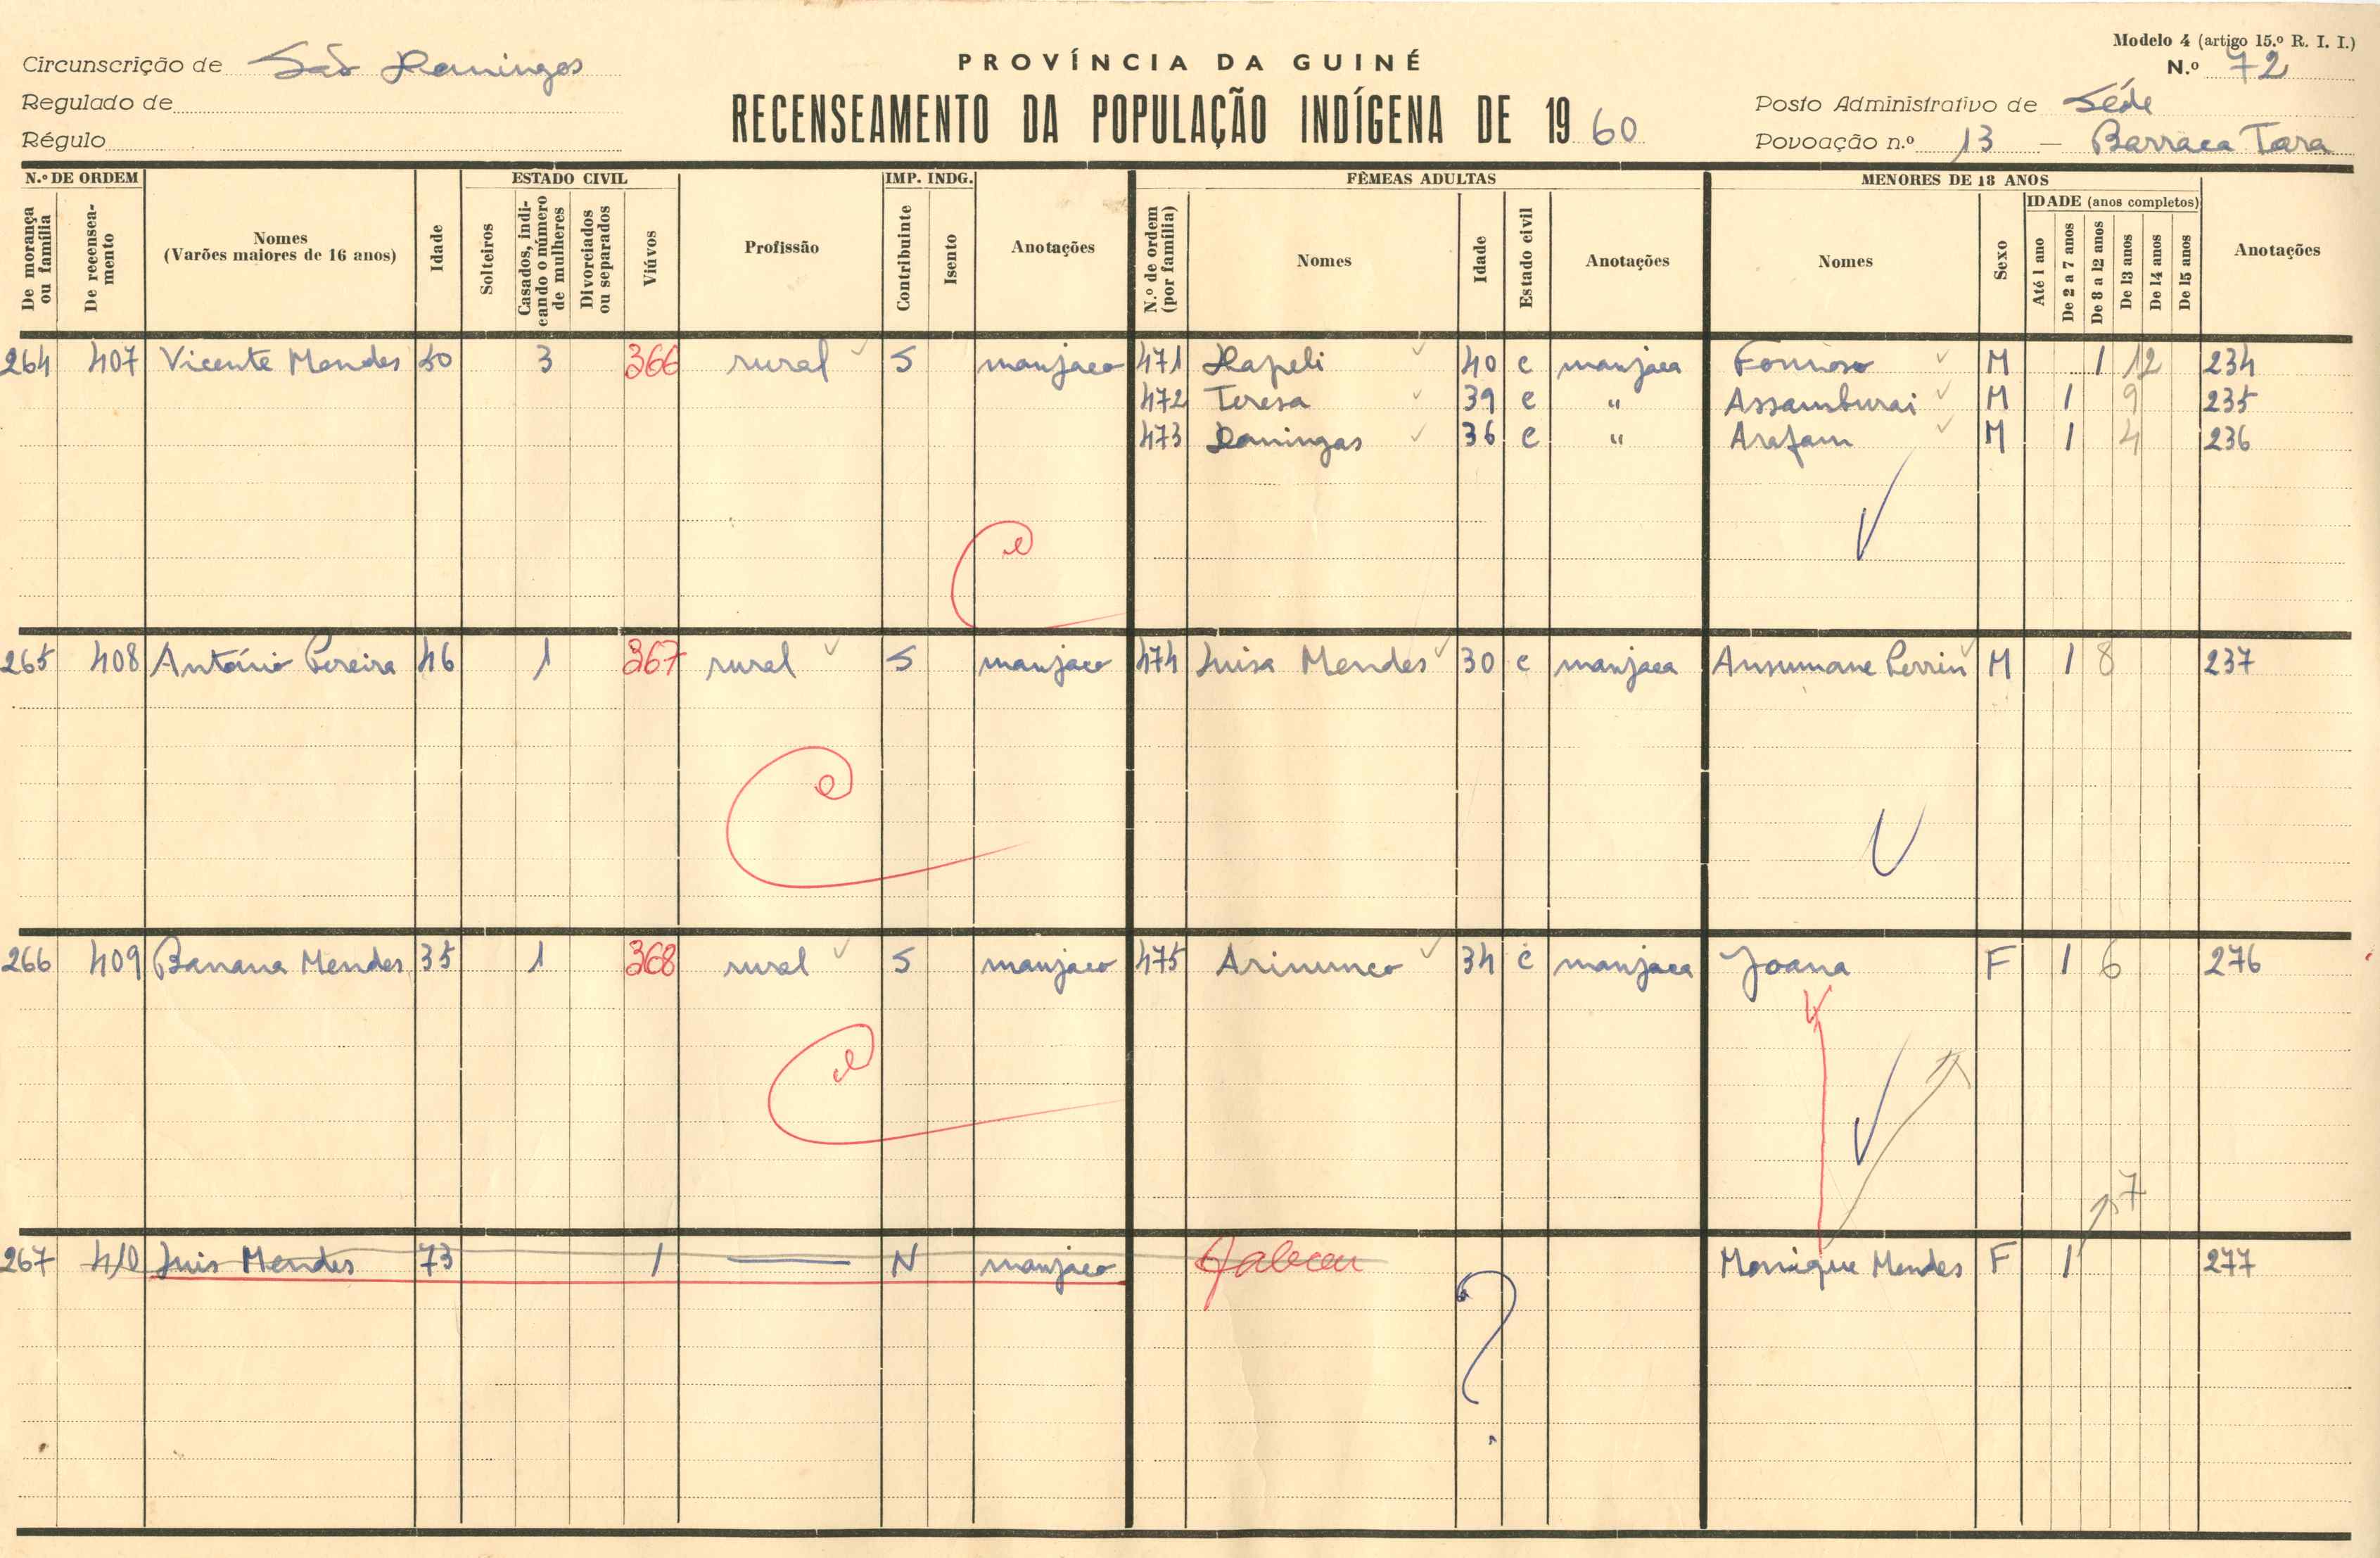 Modelo 4 (artigo 15.º R. I. I.)
Circunscrição de São Domingos
PROVÍNCIA DA GUINÉ
N.º 72
Regulado de
RECENSEAMENTO DA POPULAÇÃO INDÍGENA DE 1960
Posto Administrativo de Séde
Régulo
Povoação n.º 13 — Barraca Tara
N.º DE ORDEM ESTADO CIVIL IMP. INDG. FÊMEAS ADULTAS MENORES DE 18 ANOS
IDADE (anos completos)
De morança ou família
De recenseamento
Nomes
(Varões maiores de 16 anos)
Idade
Solteiros
Casados, indicando o número de mulheres
Divorciados ou separados
Viúvos
Profissão
Contribuinte
Isento
Anotações
N.º de ordem (por família)
Nomes
Idade
Estado civil
Anotações
Nomes
Sexo
Até 1 ano
De 2 a 7 anos
De 8 a 12 anos
De 13 anos
De 14 anos
De 15 anos
Anotações
264 407 Vicente Mendes 50 3 366 rural S manjaco 471 Dapeli 40 c manjaca Formoso M 1 12 234
472 Teresa 39 c " Assamburai M 1 9 235
473 Domingas 36 c " Arafam M 1 4 236
265 408 António Pereira 46 1 367 rural S manjaco 474 Luisa Mendes 30 c manjaca Ansumane M 1 8 237
266 409 Banana Mendes 35 1 368 rural S manjaco 475 Arinunco 34 c manjaca Joana F 1 6 276
7
267 410 Luis Mendes 73 1 — N manjaco Monique Mendes F 1 277
?